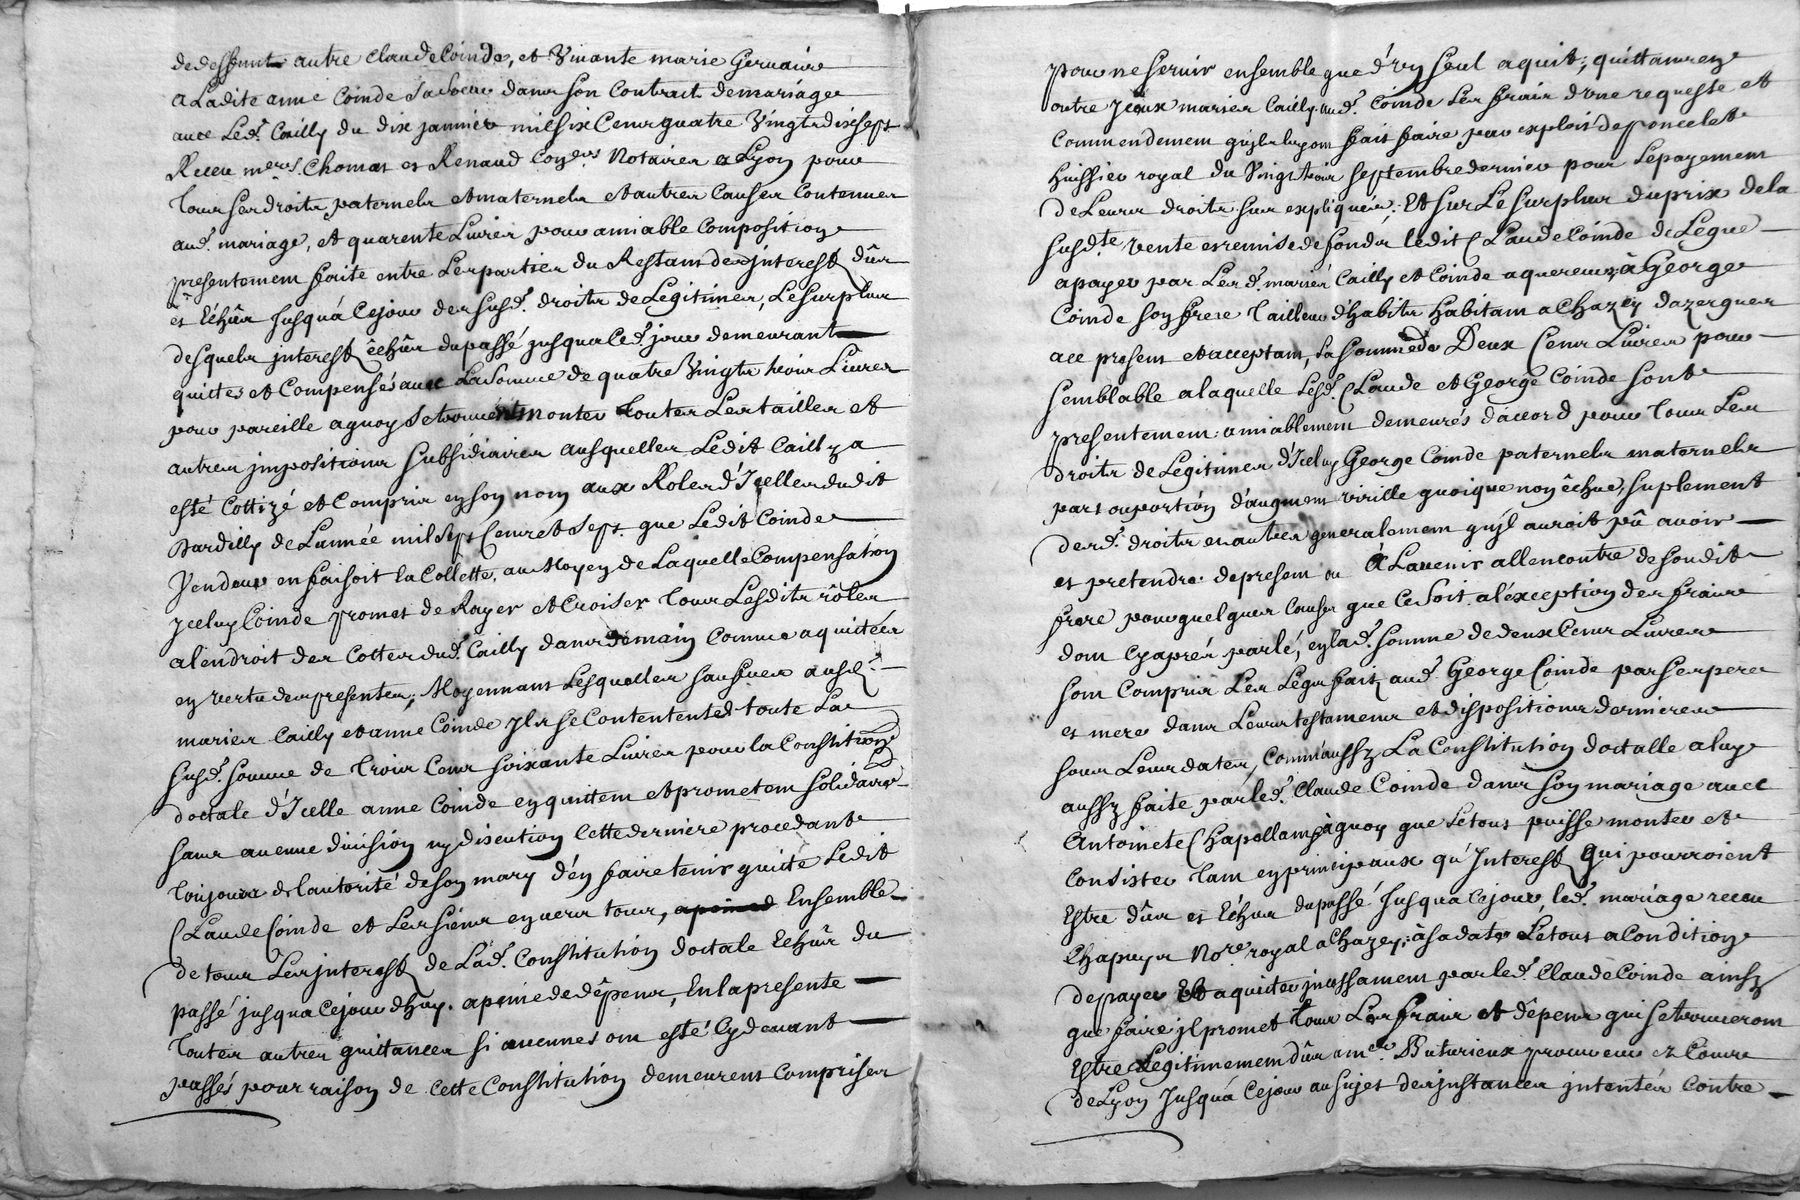 de deffunt autre Claude Coinde, et Vivante marie Gervaise
a Ladite anne Coinde Sa soeur dans son Contrat de mariage
avec Led.t Cailly du dix janvier mil six Cens quatre Vingts dix sept
Receu m.ers Chomas et Renaud Notaires a Lyon pour
tous ses droits paternels et maternels et autres Causes Contenues
aud. mariage, et quarente Livres pour amiable Composition
presentement faite entre Les parties du Restans des jnterests dûs
et Echûs Jusquá Cejour des susd. droits de Legitimes, Le surplus
desquels jnterest êchûs du passé jusqua led. jour demeurant
quittes et Compensés avec La somme de quatre Vingts huit Livres
pour pareille a quoy se trouvent monter toutes Les tailles et
autres jmpositions subsidiaires ausquelles Ledit Cailly a
esté Cottizé et Compris en son nom aux Roles d'Jcelles dudit
Dardilly de L'année mil sept Cens et sept. que Ledit Coinde
Vendeur en faisoit la Collette, au Moyen de Laquelle Compensation
jceluy Coinde promet de Rayer et Croiser tous Lesdits rôles
a l'endroit des Cottes dud. Cailly dans demain Comme aquitées
en vertu des presentes; Moyennant Lesquelles sausd.
mariés Cailly et anne Coinde jls se Contentent de toute La
susd. somme de trois Cens soixante Livres pour la Constitution
doctale d'Jcelle anne Coinde en quittent et prometent solidaire
sans aucune division ny discution Cette derniere procedante
toujours de l'autorité de son mary d'en faire tenir quitte Ledit
Claude Coinde et Les siens envers tous, Ensemble
de tous Les jnterest de Lad. Constitution doctale Echûs du
passé jusqua Cejourdhuy. a peine de dêpens, En la presente
toutes autres quittances si aucunes ont esté Cy devant
passés pour raison de Cette Constitution demeurent Comprises
pour ne servir ensemble que d'un seul aquit; quittans en
outre jceux mariés Cailly aud. Coinde Les frais d'une requeste et
Commendement qu'jls luy ont fait faire par exploit de Poncelet
huissier royal du Vingt trois septembre dernier pour Le payement
de Leurs droits sus expliqués; Et sur Le surplus du prix de la
susd.te vente et remise de fonds ledit Claude Coinde delegue
a payer par Les d. mariés Cailly et Coinde aquereurs, à George
Coinde son frere tailleur d'habits habitant a Chazey dazergues
a ce present et acceptant, La somme de Deux Cens Livres pour
semblable a laquelle Lesd. Claude et George Coinde sont
presentement amiablement demeurés d'accord pour tous Les
droits de Legitimes d'Jceluy George Coinde paternels maternels
part ou portion d'augment virille quoique non échue, suplement
desd. droits et autres generalement qu'jl auroit pû avoir
et pretendre de present ou A L'avenir allencontre de son dit
frere pour quelques Causes que Ce soit a l'éxception des frais
dont Cy aprés parlé, en lad. somme de deux Cens Livres
sont Compris Les Legs fait aud. George Coinde par ses pere
et mere dans Leurs testamens et dispositions dernieres
sous Leurs dates, Comm'aussy La Constitution doctalle a luy
aussy faite par led. Claude Coinde dans son mariage avec
Antoinete Chapollam, à quoy que Letout puisse monter et
Consister tant en principaux qu'Jnterest qui pourroient
Estre dûs et Echus du passé Jusqua Cejour, led. mariage receu
Chapuys No.re royal a Chazey, à sa date Letout a Condition
de payer Et aquiter jncessament par led. Claude Coinde ainsy
que faire jl promet tous Les frais et dêpens qui se trouveront
Estre Legitimement dûs a m.e Buturieux procureur ez Cours
de Lyon Jusquá Cejour au sujet des jnstances jntentés Contre